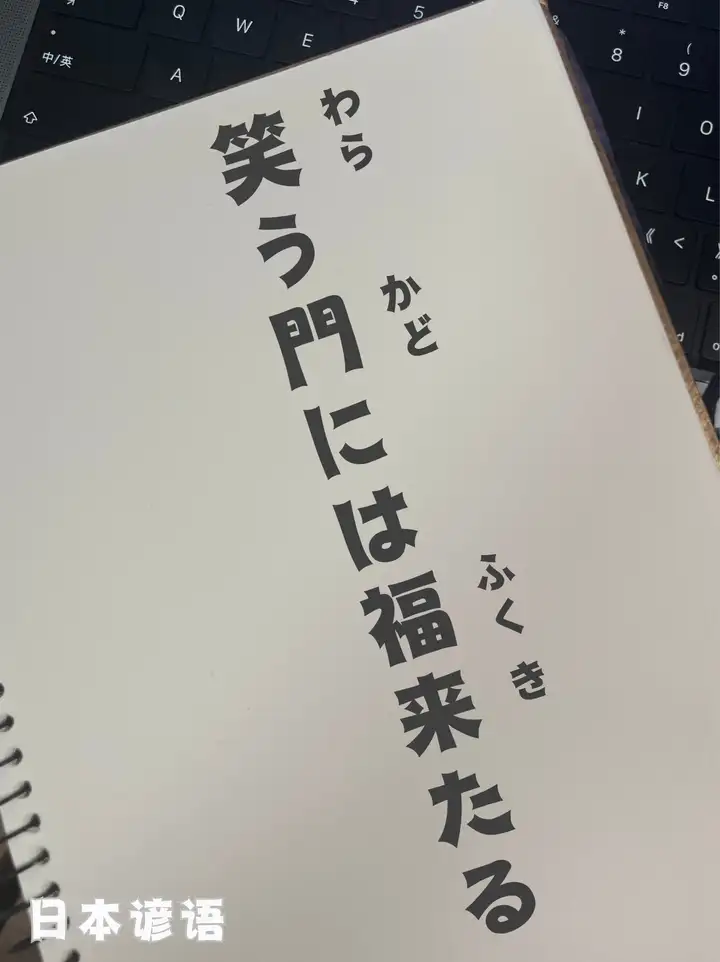 Q W E 5 F8
中/英 A * 8 ( 9
I O
K L
《 <
わら かど ふく き
笑う門には福来たる
日本谚语